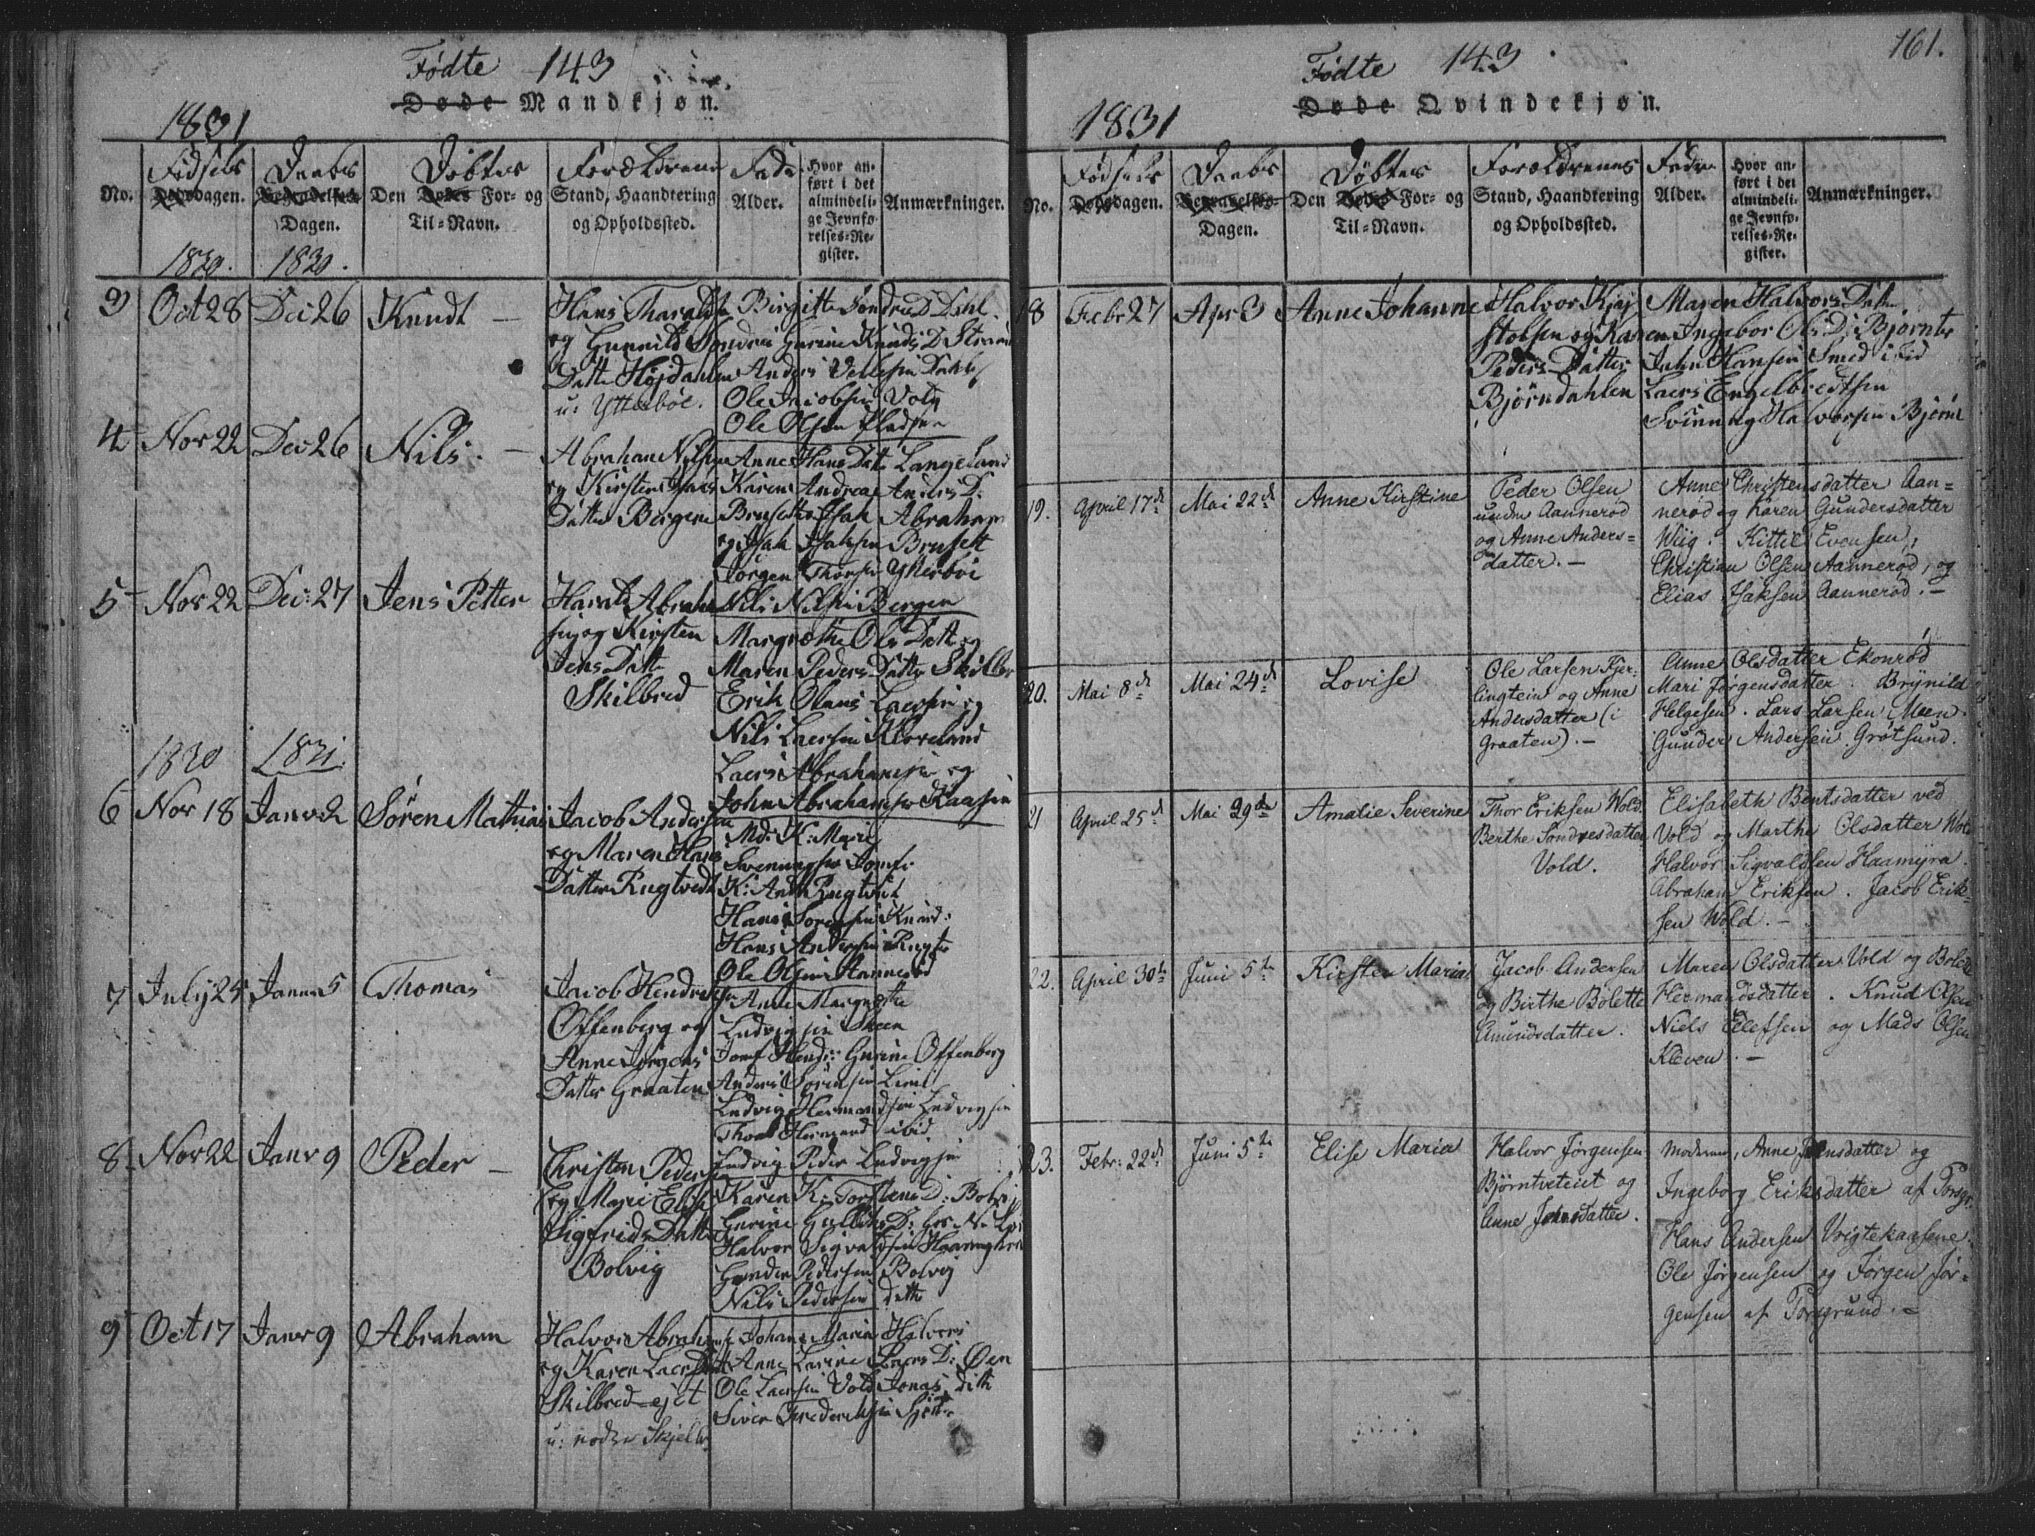 Fødte 143
Døde Mandkjøn.
1831
No.
Fødsels
Dødsdagen.
1830.
Daabs
Begravelses-
Dagen.
1830.
Døbtes
Den Dødes For- og
Til-Navn.
Forældrene
Stand, Haandtering
og Opholdssted.
Fadd
Alder.
Hvor an-
ført i det
almindeli-
ge Jevnfø-
relses-Re-
gister.
Anmærkninger.
3 Oct 28 Dec 26 Knudt —
Hans Tharalds
og Gunnild Sondre
Datter Høydahlen
u: Ytterbøe.
Birgitte Søndres D Dahl.
Gurine Knuds D
Anders Dahl
Ole Jacobsen Vold
Ole Olsen Pladsen
4 Nov 22 Dec 26 Nils. —
Abraham Nilsen
og Kirsten Jens
Datter Bergene
Anne Hans Dat Langeland
Karen Andrea Anders D:
Brusett Isak Abraham
og Isak Isaksen Brusett
Jørgen Thorsen Ytterbøe
Nils Nilsen Bergen
5 Nov 22 Dec: 27 Jens Petter
Harald Abraha
sen og Kirsten
Jens Datte
Skilbred
Margrethe Ols Datt og
Maren Peders Datter Skilbr
Erik Olaus Laersen og
Nils Laersen Kloveland
Laers Abrahamsen og
John Abrahamsen Kaasen
1830 1831.
6 Nov 18 Janv 2 Søren Mathias
Jacob Andersen
og Maren Hans
Datter Rugtvedt
Md: K: Marie
Svenungsen Jomf:
K: And Rugtvedt
Hans Sørensen Knud:
Hans Andersen Rugtv
Ole Olsen Aannerød
7 July 25 Janv 5 Thomas
Jacob Hendrichsen
Offenberg og
Anne Jørgens
Datter Graaten
Anne Margrethe
Ludvigsen Skeen
Jomf Hend: Gurine Offenberg
Anders Sørensen Lien
Ludvig Hermandsen Ludvigsen
Thoe Hermand ibid
Ludvig Peder Ludvigsen
8 Nov 22 Janv 9 Peder —
Christen Peders
og Marie Elise
Sigfrids Datte
Bolvig
Karen K: Torstens D: Bolvig
Gurine
Halvor Sigvaldsen Haamyhren
Gunder Pedersen Bolvig
Nils Pedersen dette
9 Oct 17 Janv 9 Abraham
Halvor Abraham
og Karen Laers D
Skilbred-ejet
u: nodre Skjelbr
Johane Marie Halvors
Anne Larine Laers D: Øen
Ole Laersen Vold Jonas dith
Siver Frederichsen
Fødte 143
161.
Døde Qvindekjøn.
1831
No.
Fødsels
Dødsdagen.
Daabs
Begravelses-
Dagen.
Døbtes
Den Dødes For- og
Til-Navn.
Forældrenes
Stand, Haandtering
og Opholdssted.
Faddre
Alder.
Hvor an-
ført i det
almindeli-
ge Jevnfø-
relses-Re-
gister.
Anmærkninger.
18 Febr 27 Apr 3 Anne Johanne
Halvor Kry
stofsen og Karen
Peders Datter
Bjørndahlen
Maren Halvors Datter
Ingebor Ols D: Bjørntv
John Hansen Smed i Eid
Laers Engelbredtsen
Svenning Halvorsen Bjørnt
19. April 17de Mai 22de Anne Kirstine
Peder Olsen
under Aannerød
og Anne Anders-
datter. —
Anne Christensdatter Aan-
nerød og Karen Gundersdatter
Wiig. Kittil Evensen,
Christian Olsen Aannerød, og
Elias Isaksen Aannerød. —
20. Mai 8de Mai 24de Lovise
Ole Larsen Fjer-
lingtein og Anne
Andersdatter (i
Graaten). —
Anne Olsdatter Ekonrød
Mari Jørgensdatter. Brynild
Helgesen. Lars Larsen Meen.
Gunder Andersen Grøtsund.
21 April 25de Mai 29de Amalie Severine
Thor Eriksen Wold.
Berthe Sondresdatter
Vold.
Elisabeth Bentsdatter ved
Vold og Marthe Olsdatter Wold
Halvor Sigvaldsen Haamyra.
Abraham Eriksen. Jacob Erik-
sen Wold. —
22. April 30te Juni 5te Kirsten Maria
Jacob Andersen
og Birthe Bolette
Amundsdatter.
Maren Olsdatter Vold og Bolette
Hermandsdatter. Knud Olsen
Niels Ellefsen og Mads Olsen
Kleven. —
23. Febr: 22de Juni 5te Elise Maria
Halvor Jørgensen
Bjørntveteiet og
Anne Johnsdatter.
Moderen, Anne Jensdatter og
Ingeborg Eriksdatter af Porsgr.
Hans Andersen Vrigtekaasene.
Ole Jørgensen og Jørgen Jør-
gensen af Porsgrund. —